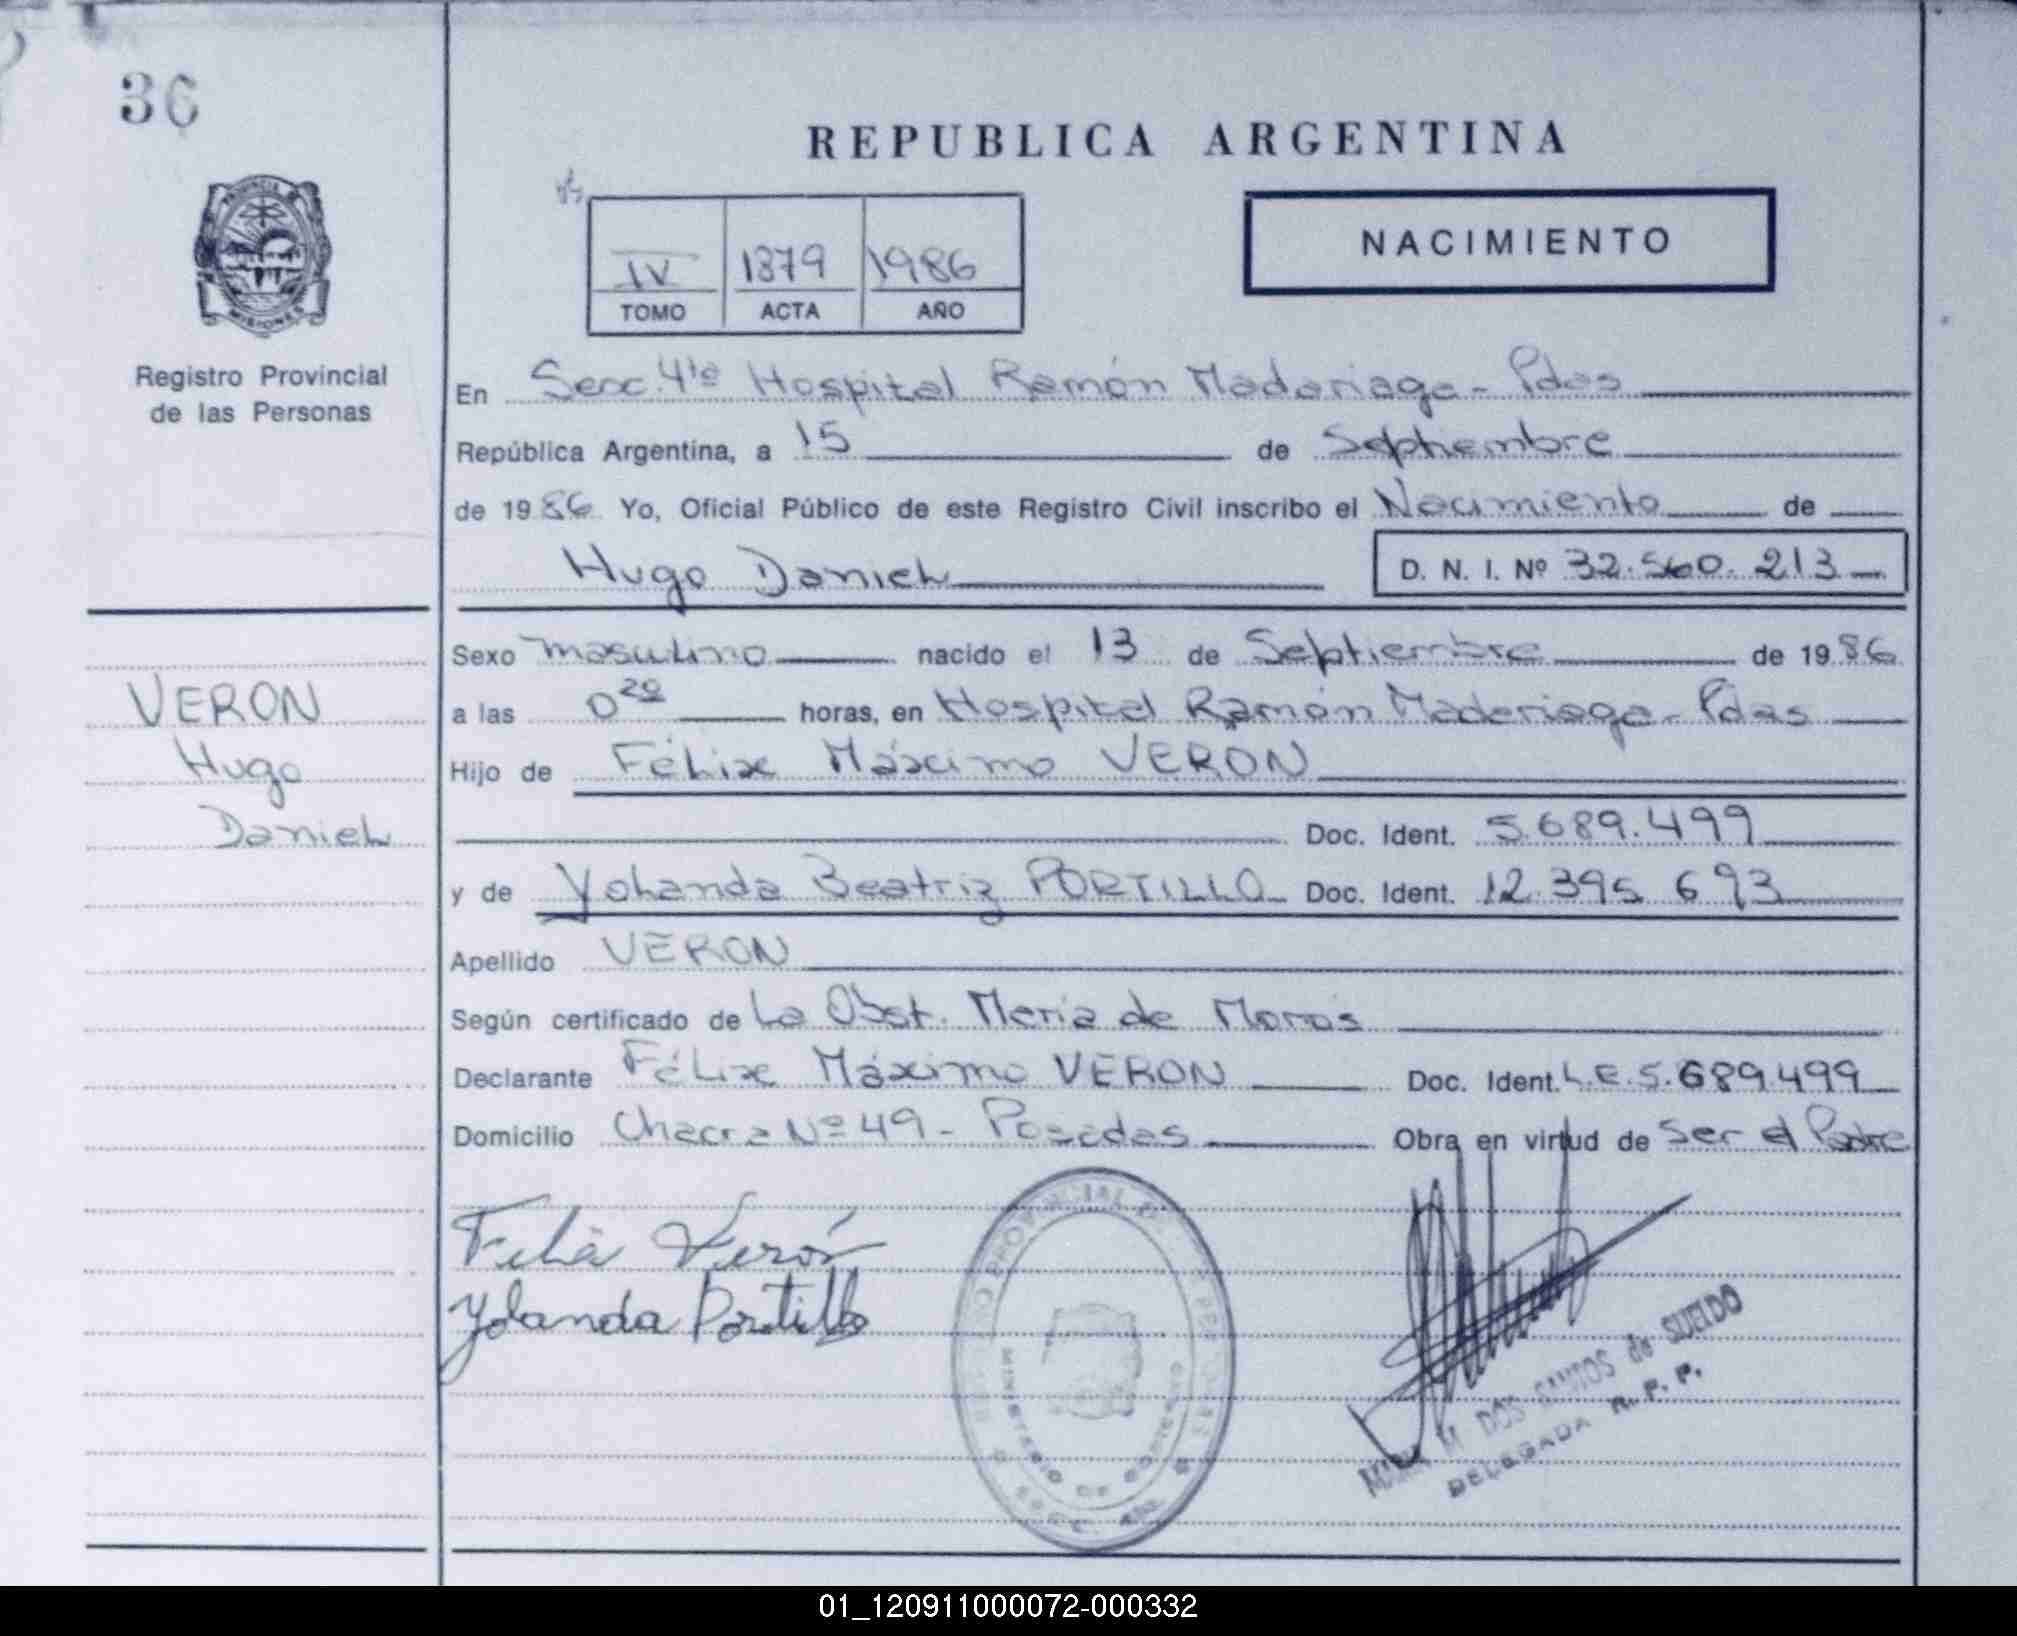 36
PROVINCIA DE
MISIONES
Registro Provincial
de las Personas
VERON
Hugo
Daniel
REPUBLICA ARGENTINA
IV 1879 1986
TOMO ACTA AÑO
NACIMIENTO
En Secc. 4ta Hospital Ramón Madariaga - Pdas
República Argentina, a 15 de Septiembre
de 1986 Yo, Oficial Público de este Registro Civil inscribo el Nacimiento de
Hugo Daniel D. N. I. Nº 32.560.213
Sexo masculino nacido el 13 de Septiembre de 1986
a las 0 20 horas, en Hospital Ramón Madariaga - Pdas
Hijo de Félix Máximo VERON
Doc. Ident. 5.689.499
y de Yolanda Beatriz PORTILLO Doc. Ident. 12.395.693
Apellido VERON
Según certificado de La Obst. María de
Declarante Félix Máximo VERON Doc. Ident. L.E.5.689.499
Domicilio Chacra Nº 49 - Posadas Obra en virtud de Ser el Padre
Felix Verón
Yolanda Portillo
REGISTRO PROVINCIAL DE LAS PERSONAS
MINISTERIO DE GOBIERNO
M DOS SANTOS de SUELDO
DELEGADA R. P. P.
01_120911000072-000332